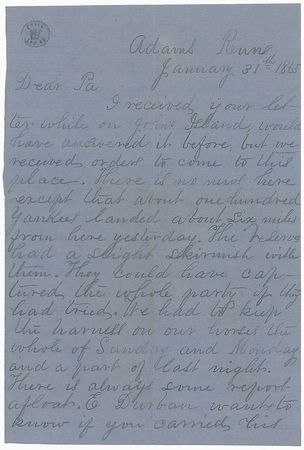 Adams Run
January 31th 1865
Dear Pa
I received your let-
ter while on John's Island, would
have answered it before, but we
received orders to come to this
place. There is no news here
except that about one hundred
Yankees landed about six miles
from here yesterday. The reserve
had a slight skirmish with
them. They could have cap-
tured the whole party if they
had tried. We had to keep
the harness on our horses the
whole of Sunday and Monday
and a part of last night.
There is always some report
afloat. E Durban wants to
know if you carried his